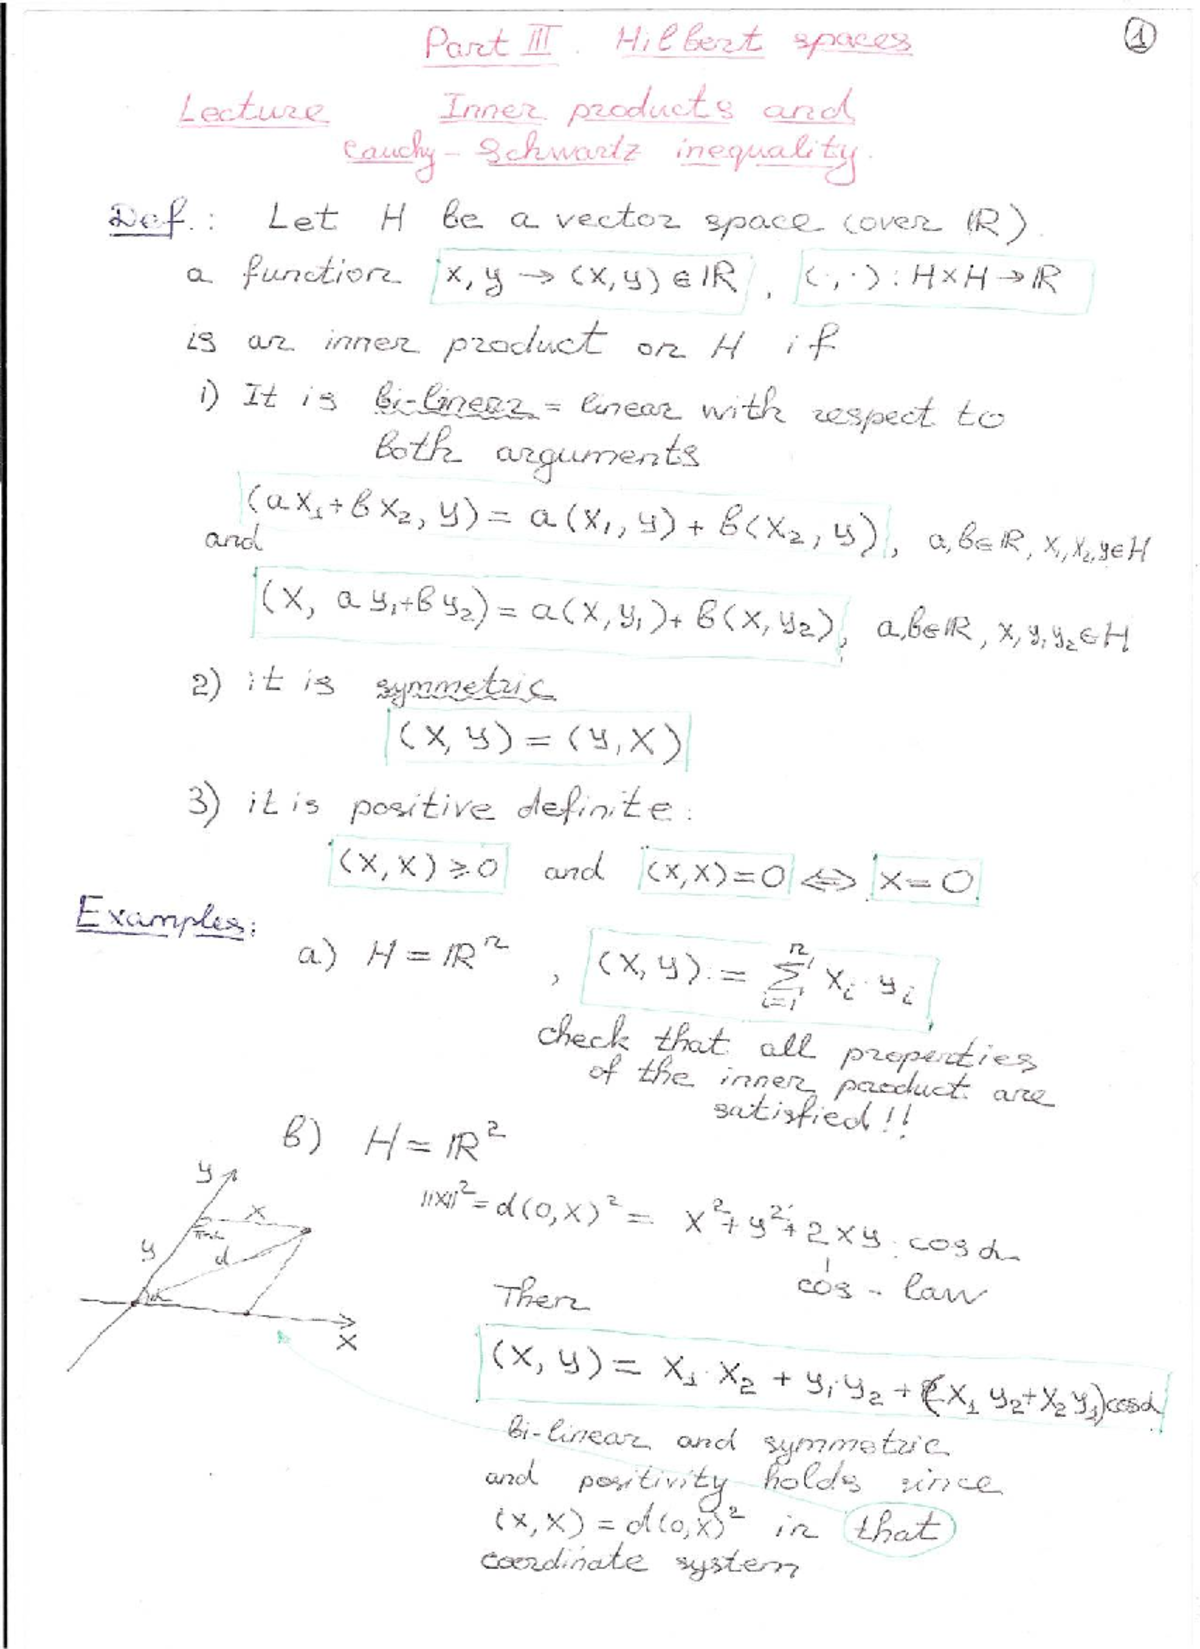 Part III. Hilbert spaces
①
Lecture Inner products and
Cauchy - Schwartz inequality.
Def.: Let H be a vector space (over ℝ).
a function x, y → (x, y) ∈ ℝ , (·, ·) : H × H → ℝ
is an inner product on H if
1) It is bi-linear = linear with respect to
both arguments
(ax₁ + bx₂, y) = a(x₁, y) + b(x₂, y), a, b ∈ ℝ, x₁, x₂, y ∈ H
and
(x, ay₁ + by₂) = a(x, y₁) + b(x, y₂), a, b ∈ ℝ, x, y₁, y₂ ∈ H
2) it is symmetric
(x, y) = (y, x)
3) it is positive definite:
(x, x) ≥ 0 and (x, x) = 0 ⇔ x = 0
Examples:
a) H = ℝⁿ , (x, y) := ∑ᵢ₌₁ⁿ xᵢ · yᵢ
check that all properties
of the inner product are
satisfied!!
b) H = ℝ²
y
x
y
π-α
d
α
x
||x||² = d(0, x)² = x² + y² + 2xy · cos α
cos - law
Then
(x, y) = x₁ · x₂ + y₁ y₂ + (x₁ y₂ + x₂ y₁) cos α
bi-linear and symmetric
and positivity holds since
(x, x) = d(0, x)² in that
coordinate system